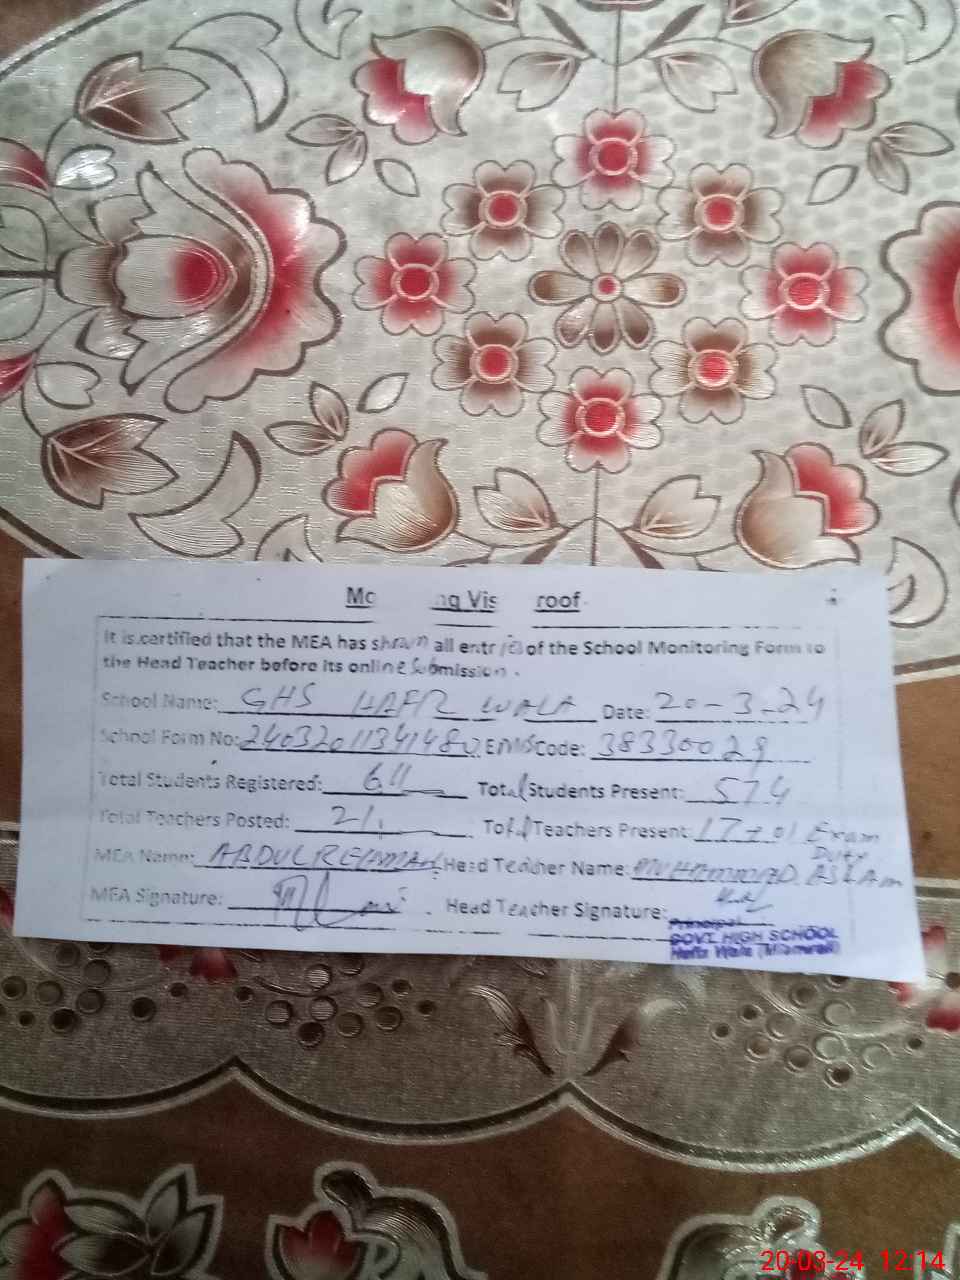 Mo ng Vis roof
It is certified that the MEA has shown all entries of the School Monitoring Form to
the Head Teacher before its online submission.
School Name: GHS HAFIZ WALA Date: 20-3-24
School Form No: EMIS Code: 38330029
Total Students Registered: 611 Total Students Present: 574
Total Teachers Posted: 21 Total Teachers Present: 17+01 Exam Duty
MEA Name: ABDUL REHMAN Head Teacher Name: MUHAMMAD ASLAM
MEA Signature: Head Teacher Signature:
Principal
GOVT. HIGH SCHOOL
Hafiz Wala (Mianwali)
20-03-24 12:14